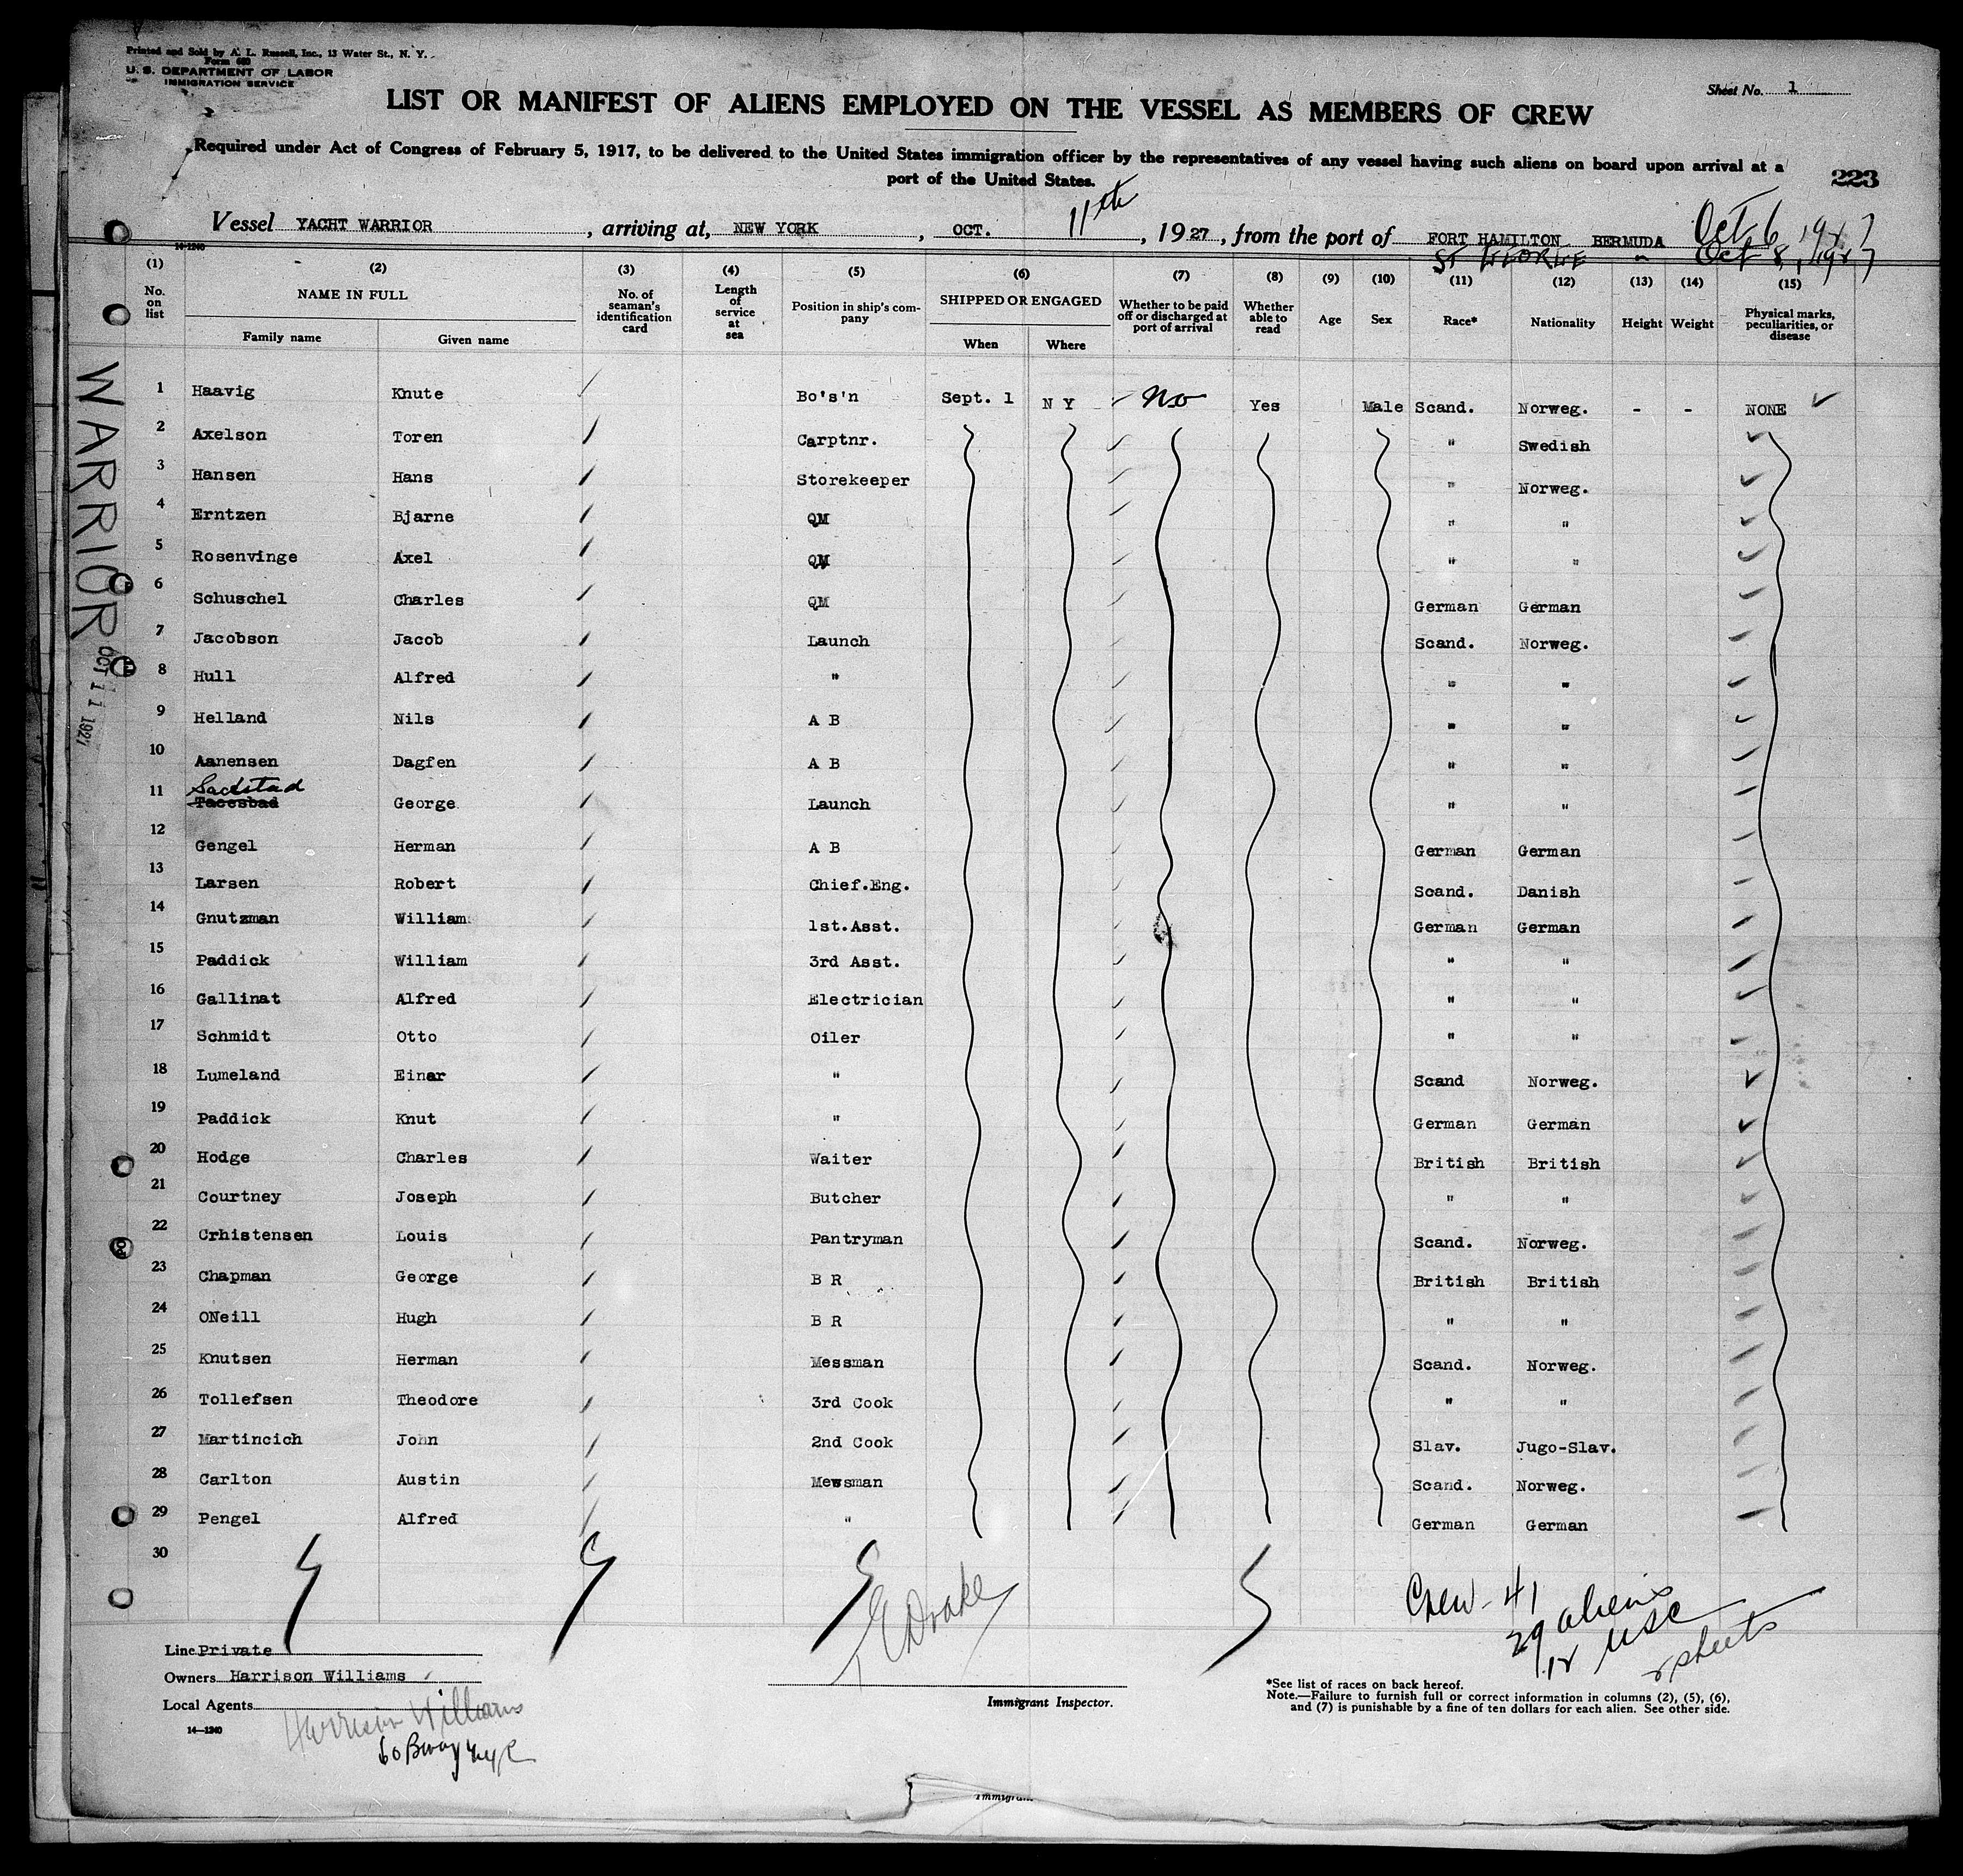 Printed and Sold by A. L. Russell, Inc., 13 Water St., N. Y.
Form 680
U. S. DEPARTMENT OF LABOR
IMMIGRATION SERVICE
Sheet No. 1
LIST OR MANIFEST OF ALIENS EMPLOYED ON THE VESSEL AS MEMBERS OF CREW
Required under Act of Congress of February 5, 1917, to be delivered to the United States immigration officer by the representatives of any vessel having such aliens on board upon arrival at a
port of the United States.
223
Vessel YACHT WARRIOR, arriving at, NEW YORK, OCT. 11th, 1927, from the port of FORT HAMILTON BERMUDA Oct 6, 1927
ST GEORGE " Oct 8, 1927
14-1240
(1) (2) (3) (4) (5) (6) (7) (8) (9) (10) (11) (12) (13) (14) (15)
No. on list
NAME IN FULL
Family name
Given name
No. of seaman's identification card
Length of service at sea
Position in ship's company
SHIPPED OR ENGAGED
When
Where
Whether to be paid off or discharged at port of arrival
Whether able to read
Age
Sex
Race*
Nationality
Height
Weight
Physical marks, peculiarities, or disease
1 Haavig Knute Bo's'n Sept. 1 N Y No Yes Male Scand. Norweg. - - NONE
2 Axelson Toren Carptnr. " Swedish
3 Hansen Hans Storekeeper " Norweg.
4 Erntzen Bjarne QM " "
5 Rosenvinge Axel QM " "
6 Schuschel Charles QM German German
7 Jacobson Jacob Launch Scand. Norweg.
8 Hull Alfred " " "
9 Helland Nils A B " "
10 Aanensen Dagfen A B " "
Sadstad
11 Tacesbad George Launch " "
12 Gengel Herman A B German German
13 Larsen Robert Chief.Eng. Scand. Danish
14 Gnutzman William 1st.Asst. German German
15 Paddick William 3rd Asst. " "
16 Gallinat Alfred Electrician " "
17 Schmidt Otto Oiler " "
18 Lumeland Einar " Scand Norweg.
19 Paddick Knut " German German
20 Hodge Charles Waiter British British
21 Courtney Joseph Butcher " "
22 Crhistensen Louis Pantryman Scand. Norweg.
23 Chapman George B R British British
24 ONeill Hugh B R " "
25 Knutsen Herman Messman Scand. Norweg.
26 Tollefsen Theodore 3rd Cook " "
27 Martincich John 2nd Cook Slav. Jugo-Slav.
28 Carlton Austin Mewsman Scand. Norweg.
29 Pengel Alfred " German German
30
WARRIOR
OCT 11 1927
Crew - 41
29 aliens
12 USC
2 sheets
E Drake
Line Private
Owners Harrison Williams
Local Agents
Harrison Williams
60 Bway NYC
14—1240
Immigrant Inspector.
*See list of races on back hereof.
Note.—Failure to furnish full or correct information in columns (2), (5), (6),
and (7) is punishable by a fine of ten dollars for each alien. See other side.